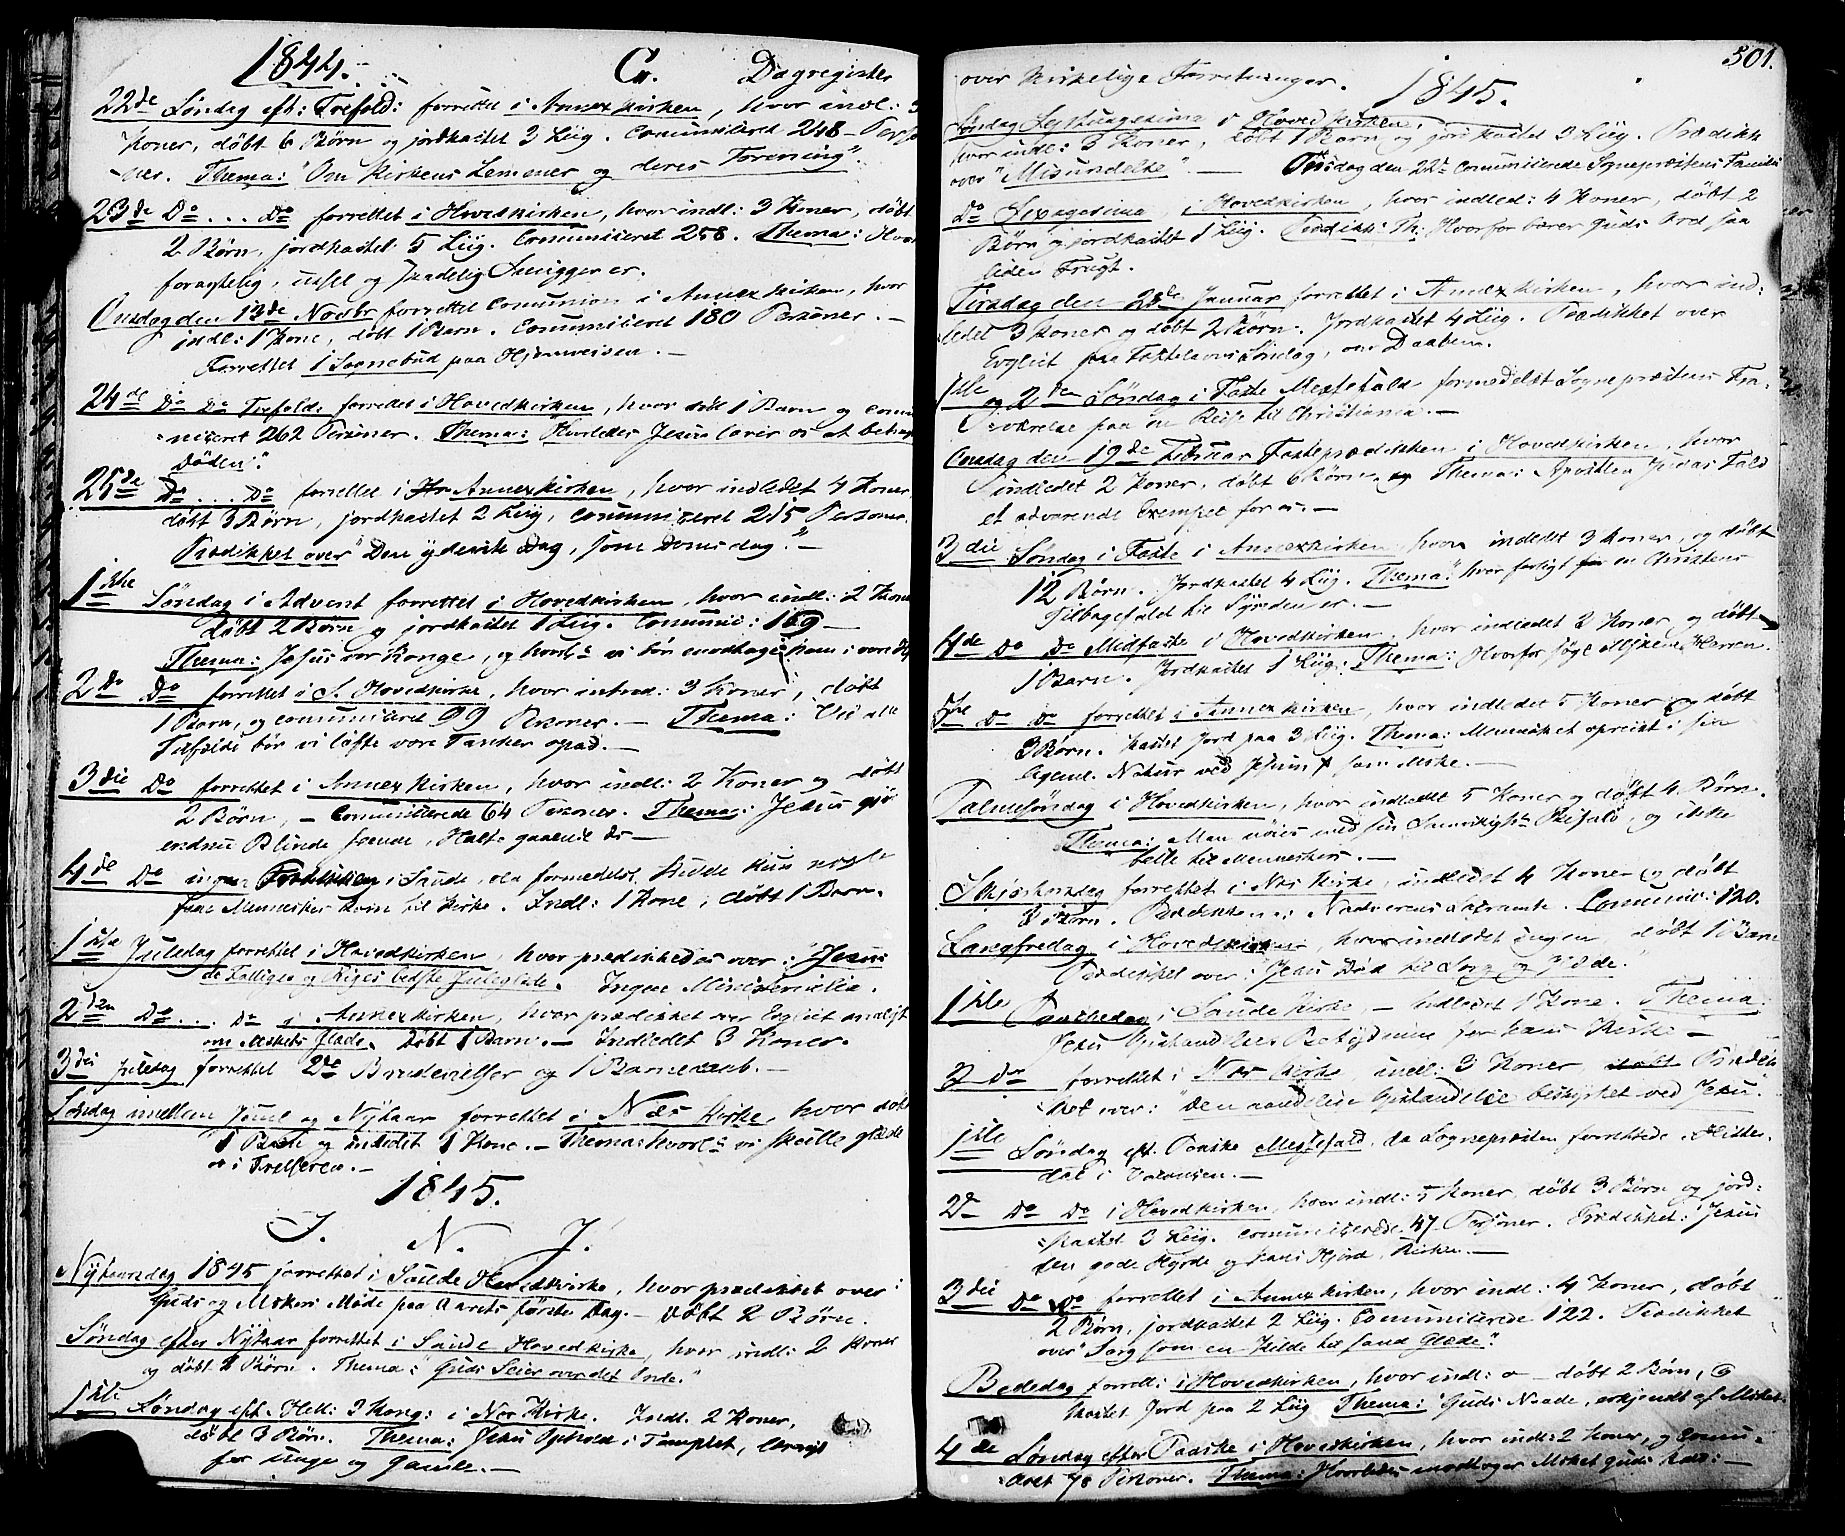 1844. C. Dagregister
22de Søndag eft: Trefold: forrettet i Annexkirken, hvor indl: 3
Koner, døbt 6 Børn og jordkastet 3 Liig. Comuniceret 248 Perso
ner. Thema: "Om Kirkens Lemmer og deres Forening".
23de Do ... Do forrettet i Hovedkirken, hvor indl: 3 Koner, døbt
2 Børn, jordkastet 5 Liig. Comuniceret 258. Thema: Hvor
foragtelig, ussel og skadelig er.
Onsdag den 13de Novbr forrettet Comunion i Annexkirken, hvor
indl: 1 Kone, døbt 1 Barn. Comuniceret 180 Personer. -
Forrettet 1 Sognebud paa Hjemreisen. -
24de Do Do Trefold: forrettet i Hovedkirken, hvor døbt 1 Barn og comu
niceret 262 Personer. Thema: Hvorledes Jesus lærer os at betragte
Døden".
25de Do ... Do forrettet i Annexkirken, hvor indledet 4 Koner,
døbt 3 Børn, jordkastet 2 Liig, comuniceret 215 Personer.
Prædikket over "Den yderste Dag, som Domsdag." -
1ste Søndag i Advent forrettet i Hovedkirken, hvor indl: 2 Kone
døbt 2 Børn og jordkastet 1 Liig. Comunic: 169 -
Thema: Jesus vor Konge, og hvorls vi bør modtage ham i vore
2do Do forrettet i S. Hovedkirke, hvor introd: 3 Koner, døbt
1 Barn, og comuniceret 99 Personer. - Thema: Ved alle
Tilfælde bør vi løfte vore Tanker opad. -
3die Do forrettet i Annexkirken, hvor indl: 2 Koner og døbt
2 Børn, - Comunicerede 64 Personer. Thema: Jesus gjør
endnu Blinde seende, Halte gaaende &c -
4de Do ingen Prædiken i Saude, da formedelst kun nogle
faae Mennesker kom til Kirke. Indl: 1 Kone, døbt 1 Barn.
1ste Juledag forrettet i Hovedkirken, hvor prædikkedes over: "Jesus
de Fattiges og Riges bedste Juleglæde. Ingen Ministerialia.
2den Do ... Do i Annexkirken, hvor prædikket over Evgliet
om Glæde. Døbt 1 Barn. - Indledet 3 Koner.
3die Juledag forrettet 2de Brudevielser og 1 Barnedaab. -
Søndag imellem Juul og Nytaar forrettet i Næs Kirke, hvor døbt
1 Barn og indledet 1 Kone. - Thema: hvorls vi skulle glæde
os i Frelseren. -
1845.
I. N. J.
Nytaarsdag 1845 forrettet i Saude Hovedkirke, hvor prædikket over:
Guds og Mskers Møde paa Aarets første Dag. - Døbt 2 Børn.
Søndag efter Nytaar forrettet i Saude Hovedkirke, hvor indl: 2 Koner
og døbt 2 Børn. Thema: "Guds Seier over det Onde."
1ste Søndag eft. Hell: 3 Kong: i Næs Kirke. Indl. 2 Koner,
døbt 3 Børn. Thema: Jesu Ophold i Templet,
for unge og gamle. -
501.
over Kirkelige Forretninger. 1845.
Søndag Septuagesima i Hovedkirken,
hvor indl: 3 Koner, døbt 1 Barn og jordkastet 3 Liig. Prædikk
over "Misundelse". - Tirsdag den 22de comunicerede Sognepræstens Familie
Do Sexagesima, i Hovedkirken, hvor indled: 4 Koner, døbt 2
Børn og jordkastet 1 Liig. Prædikk: Th: Hvorfor bærer Guds Ord saa
liden Frugt.
Tirsdag den 28de Januar forrettet i Annexkirken, hvor ind:
ledet 3 Koner og døbt 2 Børn. Jordkastet 4 Liig. Prædikket over
Evgliet paa Fastelavns Søndag, om Daaben.
1ste og 2den Søndag i Faste Messefald formedelst Sognepræstens Fra:
værelse paa en Reise til Christiania. -
Onsdag den 19de Februar Fasteprædikken i Hovedkirken, hvor
indledet 2 Koner, døbt 6 Børn. Thema: Apostlen Judas Fald
et advarende Exempel for os. -
3die Søndag i Faste i Annexkirken, hvor indledet 3 Koner, og døbt
12 Børn. Jordkastet 4 Liig. Thema: "hvor farligt for en Christens
Tilbagefald til Synden er. -
4de Do Do Midfaste i Hovedkirken, hvor indledet 2 Koner, og døbt
1 Barn. Jordkastet 1 Liig: Thema: Hvorfor søge Herren.
5te Do Do forrettet i Annexkirken, hvor indledet 5 Koner og døbt
3 Børn. Kastet Jord paa 3 Liig. Thema: Mennesket opreist i sin
Natur ved Jesum som Mske. -
Palmesøndag i Hovedkirken, hvor indledet 5 Koner og døbt 4 Børn.
Thema: Man nøies med sin Samvittigheds Bifald, og ikke
Menneskers. -
Skjærtorsdag forrettet i Næs Kirke, indledet 4 Koner og døbt
Børn. Prædikken: Nadverens Sacramente. Comunic: 120.
Langfredag i Hovedkirken, hvor indledet ingen, døbt 1 Barn
Prædikket over: "Jesu Død til Sorg og Glæde".
1ste Paaskedag i Saude Kirke, - Indledet 1 Kone. Thema:
Jesu Opstandelses Betydning for hans Kirke -
2 Do forrettet i Næs Kirke, indl: 3 Koner, Prædik
ket over: "Den aandelige Opstandelse bestyrket ved Jesu".
1ste Søndag eft. Paaske Messefald, da Sognepræsten forrettede i Hitter:
dal i Vacansen. -
2de Do Do i Hovedkirken, hvor indl: 5 Koner, døbt 3 Børn og jord:
kastet 3 Liig. comunicerede 47 Personer. Prædikket: "Jesus
den gode Hyrde og hans Hjord, Kirken. -
3die Do Do forrettet i Annexkirken, hvor indl: 4 Koner, døbt
2 Børn, jordkastet 2 Liig. Comunicerede 122. Prædikket
over "Sorg som en Kilde til sand Glæde".
Bededag forrett: i Hovedkirken, hvor indl: 0 - døbt 2 Børn, og
kastet Jord paa 2 Liig. Thema: "Guds Naade, erkjendt af
4de Søndag efter Paaske i Hovedkirken, hvor indl: 2 Koner, og Comu:
ceret 70 Personer. Thema: Hvorledes modtager Msket Guds Raad: -